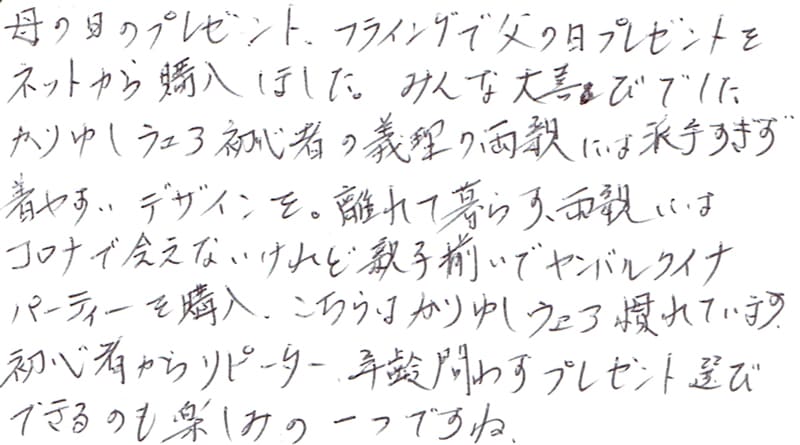 母の日のプレゼント、フライングで父の日プレゼントを
ネットから購入しました。みんな大喜びでした
かりゆしウェア初心者の義理の両親には派手すぎず
着やすいデザインを。離れて暮らす、両親には
コロナで会えないけれど親子揃いでヤンバルクイナ
パーティーを購入、こちらはかりゆしウェア慣れています。
初心者からリピーター、年齢問わずプレゼント選び
できるのも楽しみの一つですね、